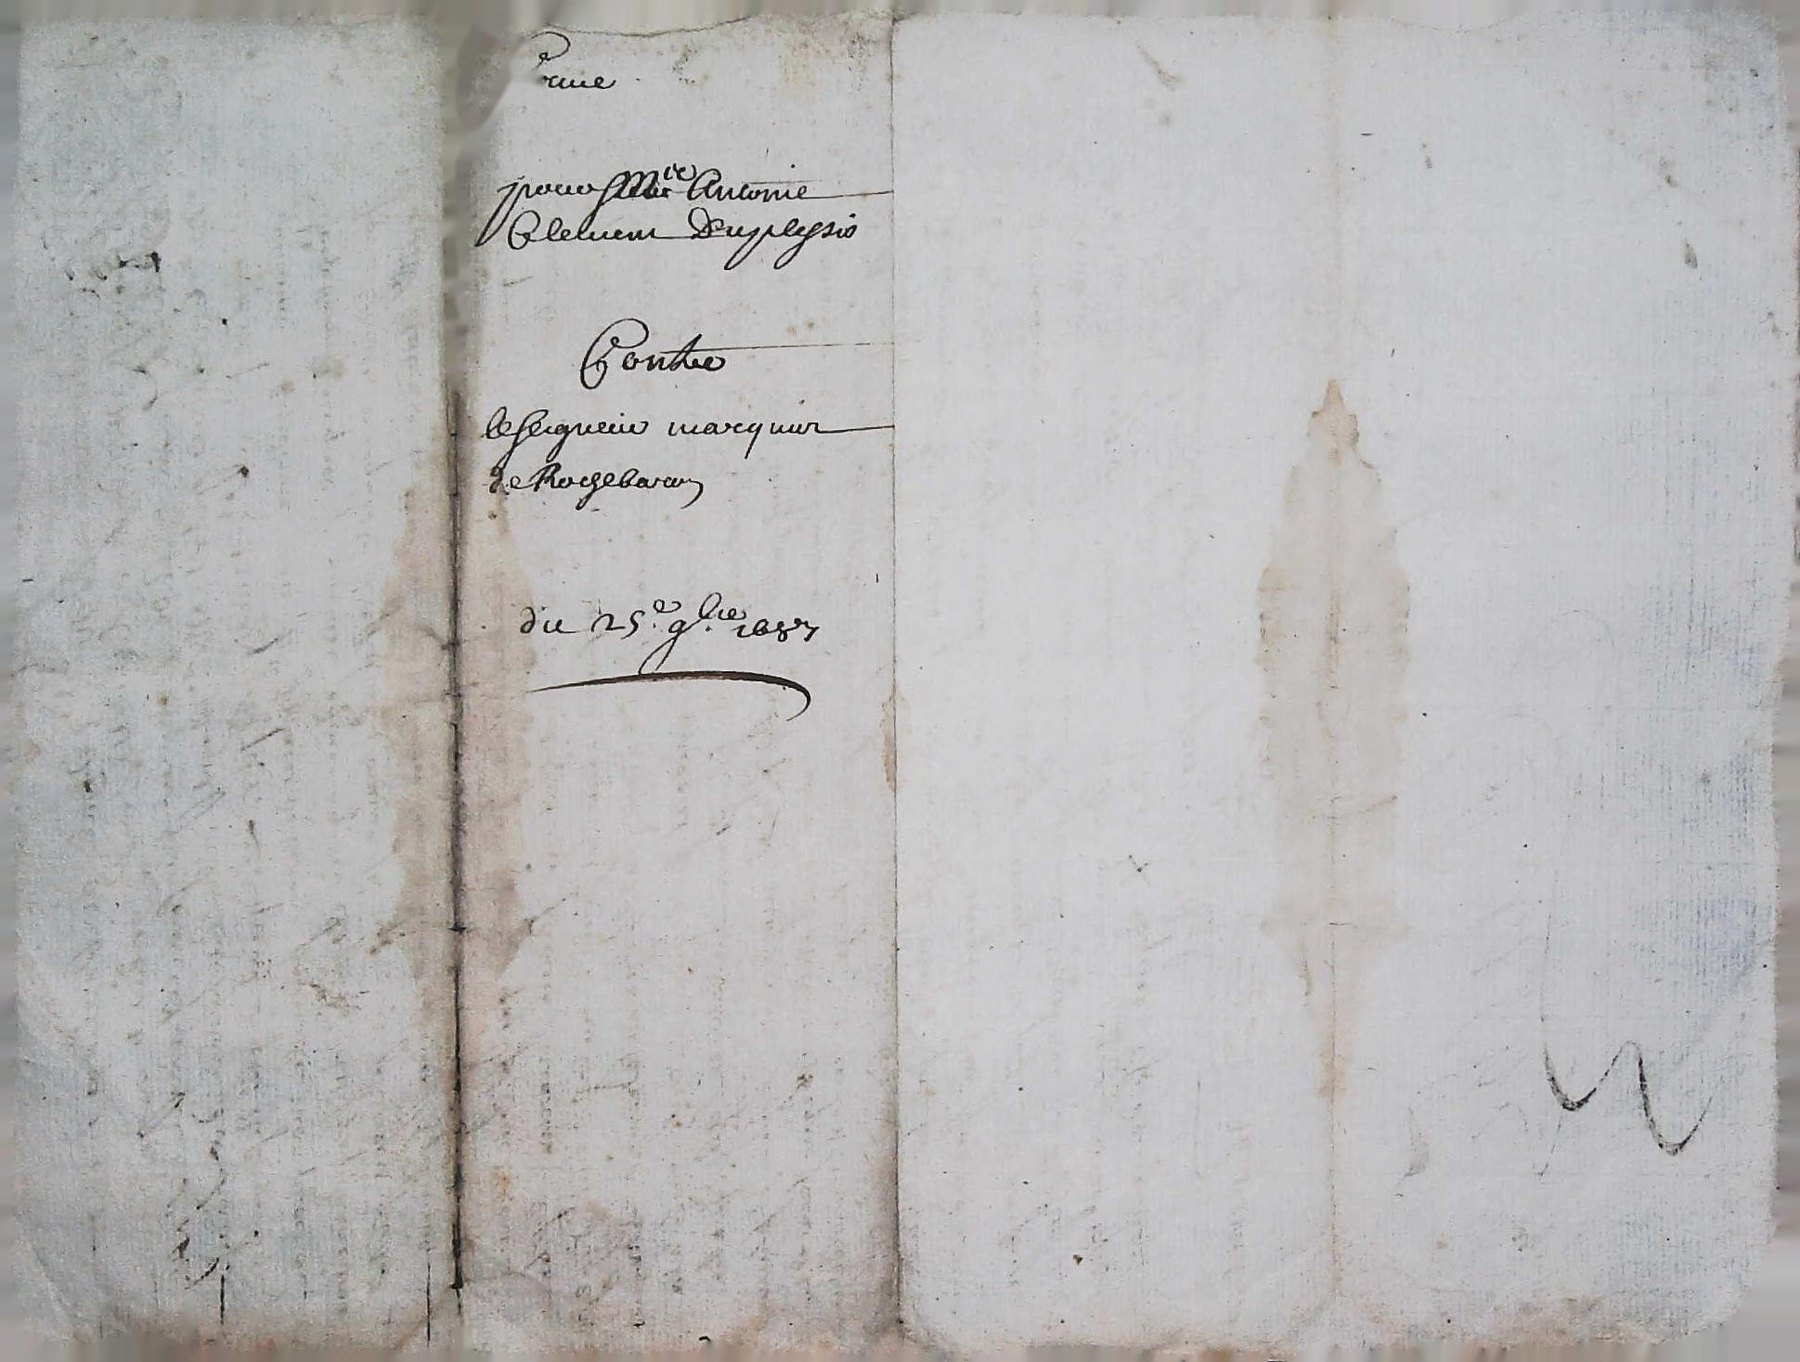 pour Mre Antoine
Clement Duplessis
Contre
le seigneur marquis
de Rochebaron
du 25e 9bre 1687